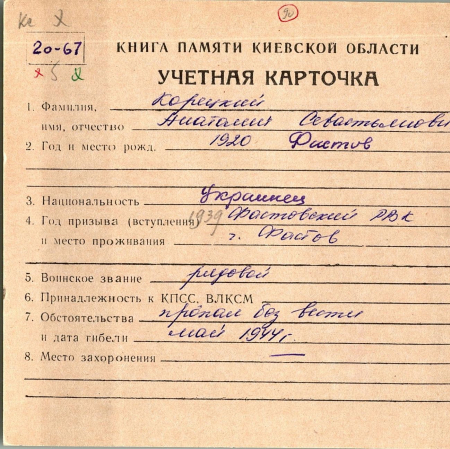 90
20-67
КНИГА ПАМЯТИ КИЕВСКОЙ ОБЛАСТИ
УЧЕТНАЯ КАРТОЧКА
1. Фамилия, Корецкий
имя, отчество Анатолий Севастьянови
2. Год и место рожд. 1920 Фастов
3. Национальность украинец
4. Год призыва (вступления) 1939 Фастовский РВК
и место проживания г. Фастов
5. Воинское звание рядовой
6. Принадлежность к КПСС, ВЛКСМ
7. Обстоятельства пропал без вести
и дата гибели май 1944 г.
8. Место захоронения —